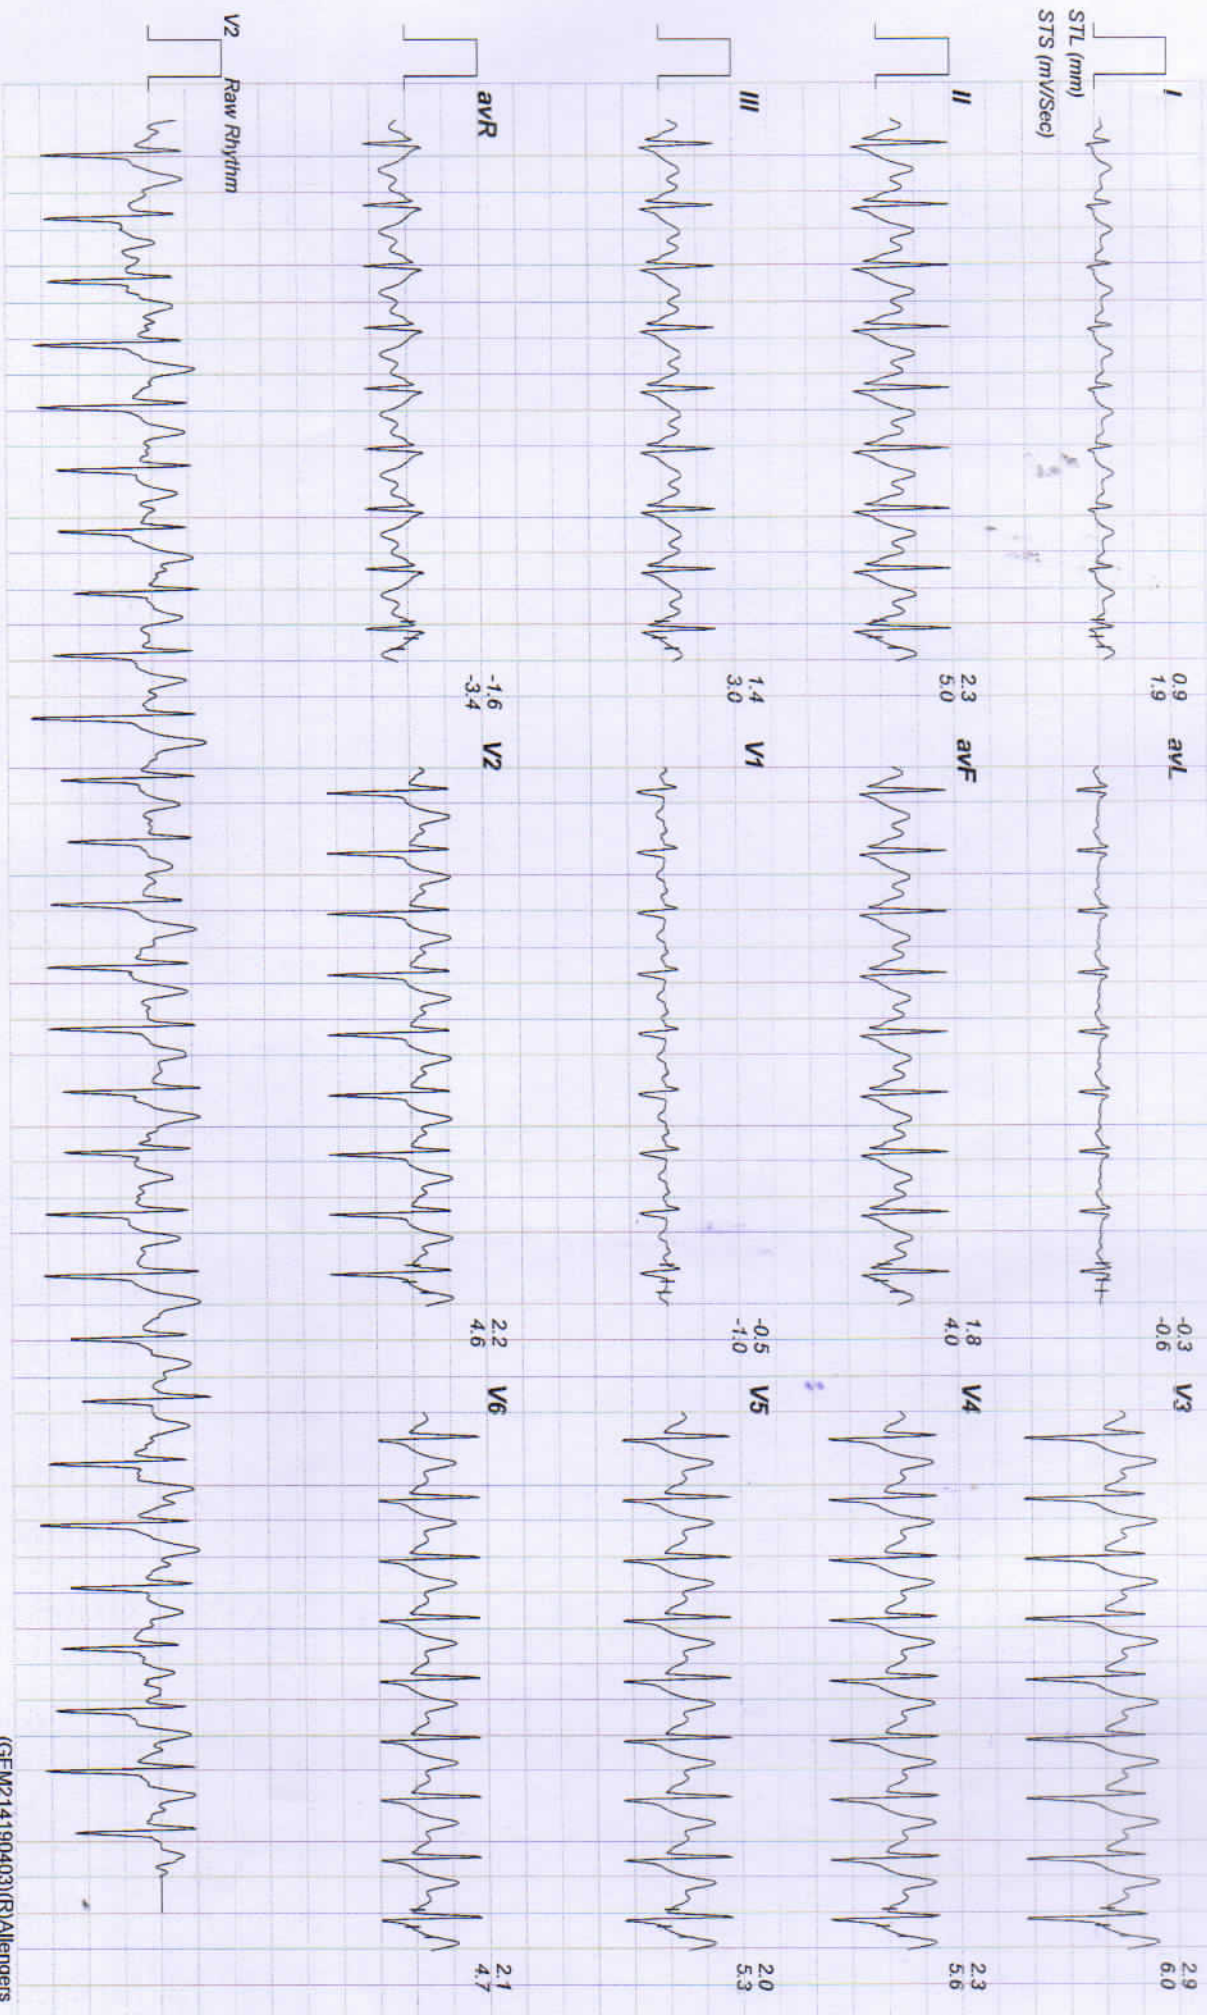 I
STL (mm)
STS (mV/Sec)
0.9
1.9
avL
-0.3
-0.6
V3
2.9
6.0
II
2.3
5.0
avF
1.8
4.0
V4
2.3
5.6
III
1.4
3.0
V1
-0.5
-1.0
V5
2.0
5.3
avR
-1.6
-3.4
V2
2.2
4.6
V6
2.1
4.7
V2 Raw Rhythm
(GEM214190403)(R)Allengers